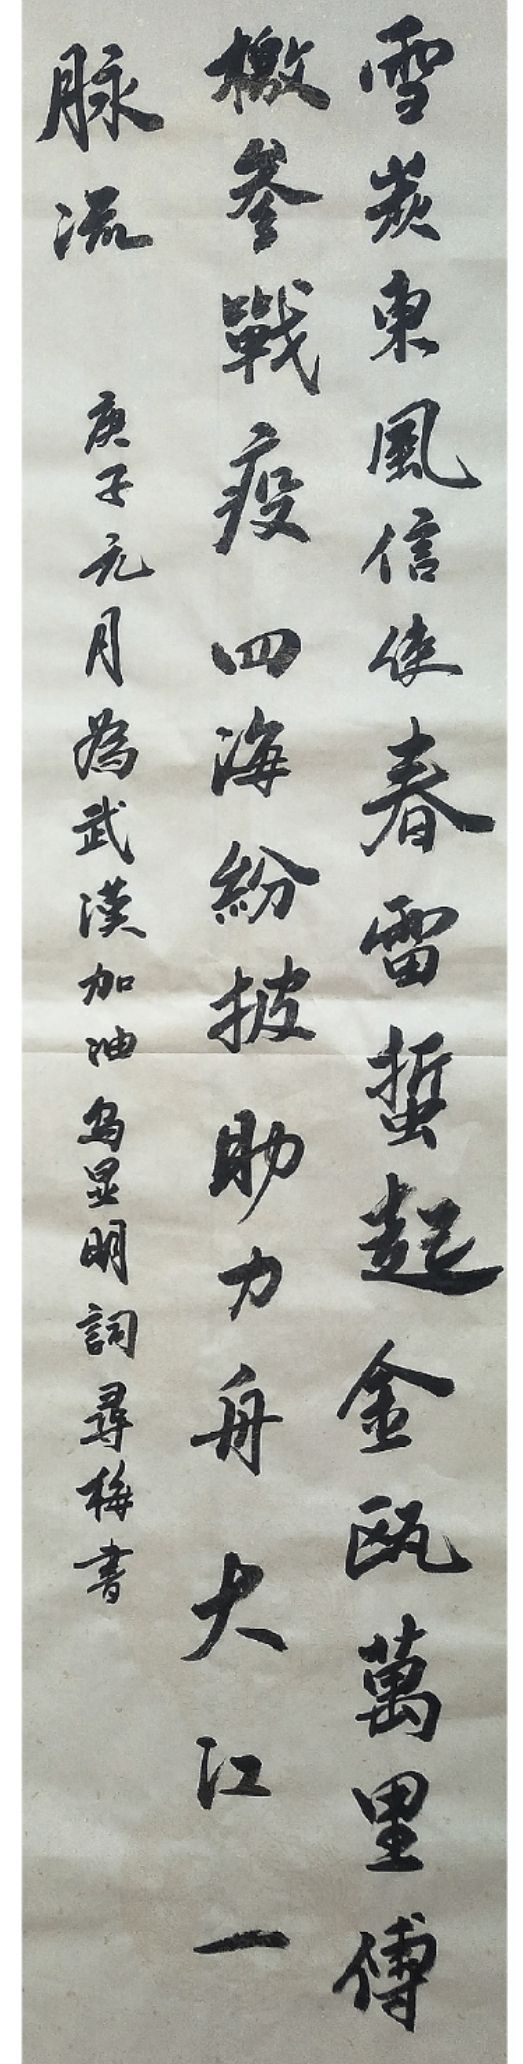 雪炭東風信使春雷蜇起金甌萬里傳
檄參戰疫四海紛披助力舟大江一
脉流
庚子元月為武漢加油烏显明詞尋梅書